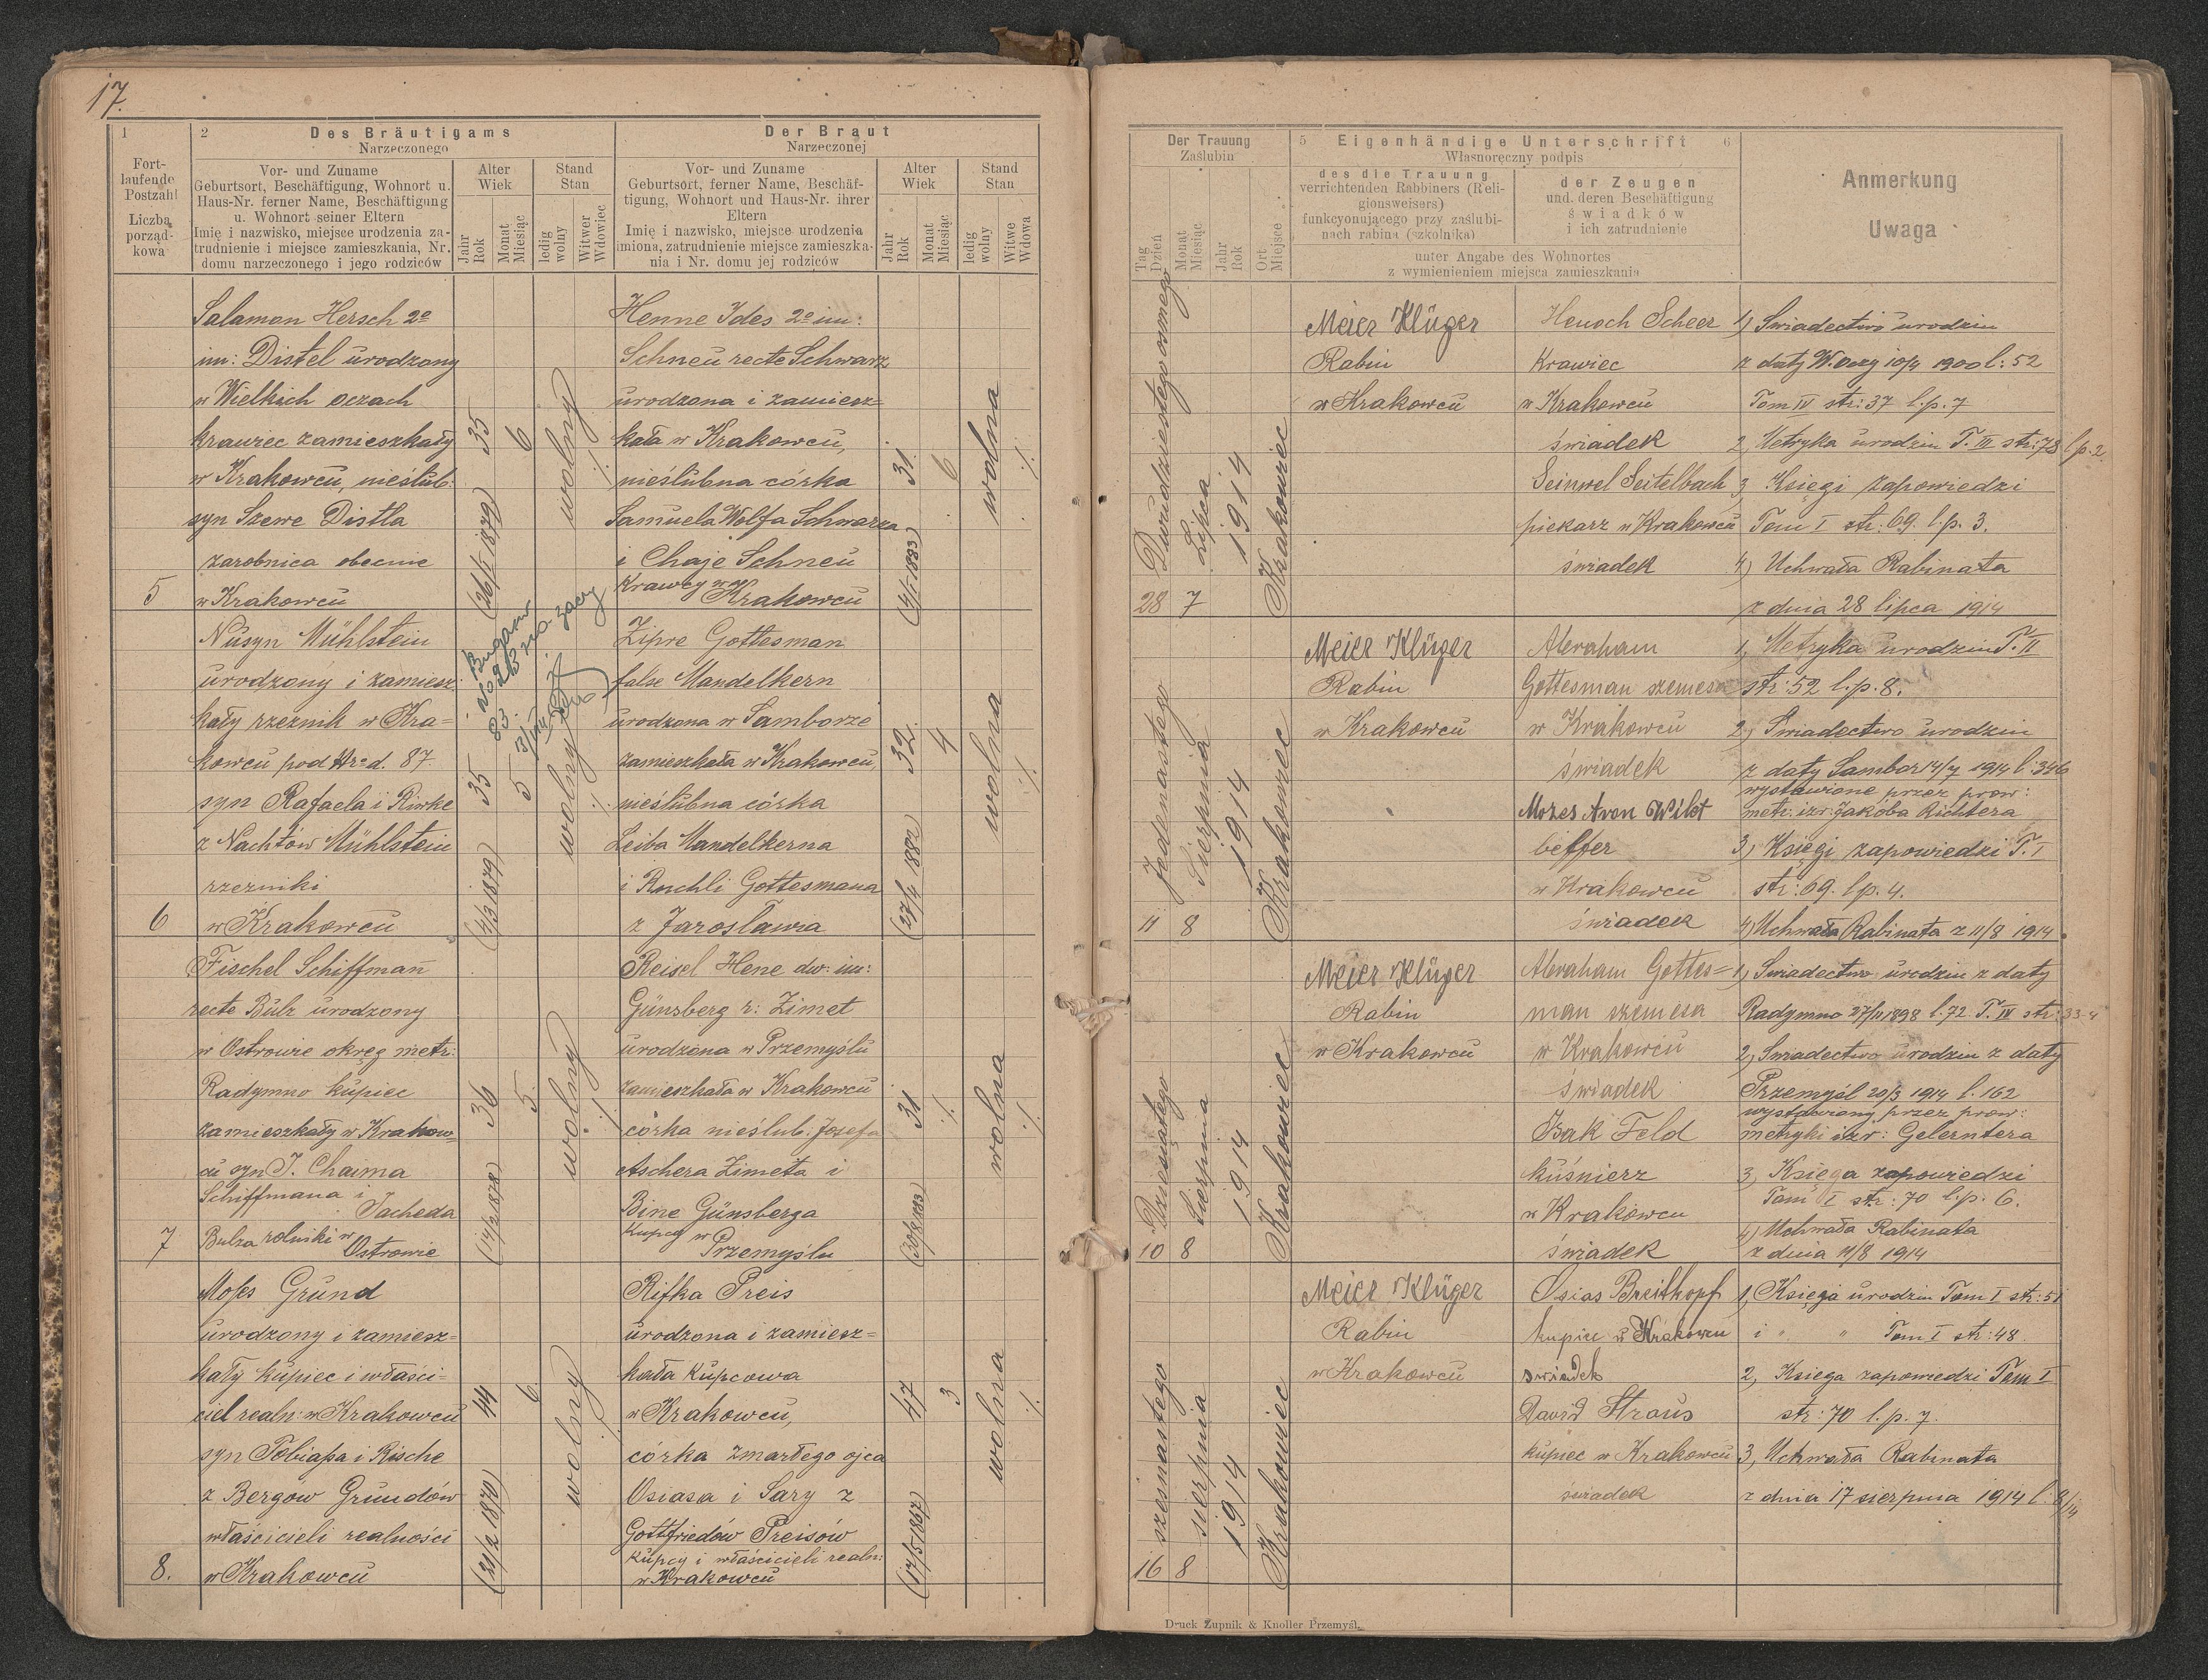 17.
1
Fort-
laufende
Postzahl
Liczba
porząd-
kowa
2
Des Bräutigams
Narzeczonego
Vor- und Zuname
Geburtsort, Beschäftigung, Wohnort u.
Haus-Nr. ferner Name, Beschäftigung
u. Wohnort seiner Eltern
Imię i nazwisko, miejsce urodzenia za-
trudnienie i miejsce zamieszkania, Nr.
domu narzeczonego i jego rodziców
Alter
Wiek
Jahr
Rok
Monat
Miesiąc
Stand
Stan
ledig
wolny
Witwer
Wdowiec
Der Braut
Narzeczonej
Vor- und Zuname
Geburtsort, ferner Name, Beschäf-
tigung, Wohnort und Haus-Nr. ihrer
Eltern
Imię i nazwisko, miejsce urodzenia
imiona, zatrudnienie miejsce zamieszka-
nia i Nr. domu jej rodziców
Alter
Wiek
Jahr
Rok
Monat
Miesiąc
Stand
Stan
ledig
wolny
Witwe
Wdowa
Der Trauung
Zaślubin
Tag
Dzień
Monat
Miesiąc
Jahr
Rok
Ort
Miejsce
5 Eigenhändige Unterschrift 6
Własnoręczny podpis
des die Trauung
verrichtenden Rabbiners (Reli-
gionsweisers)
funkcyonującego przy zaślubi-
nach rabina (szkolnika)
der Zeugen
und deren Beschäftigung
świadków
i ich zatrudnienie
unter Angabe des Wohnortes
z wymienieniem miejsca zamieszkania
Anmerkung
Uwaga
5
Salamon Hersch 2e
im: Distel urodzony
w Wielkich oczach
krawiec zamieszkały
w Krakowcu, nieślub:
syn Szewe Distla
zarobnica obecnie
w Krakowcu
35
(26/1 1879)
6
wolny
Henne Ides 2e im:
Schneu recte Schwarz
urodzona i zamiesz=
kała w Krakowcu,
nieślubna córka
Samuela Wolfa Schwarza
i Chaje Schneu
Krawcy w
Krakowcu
31.
(4/1 1883)
6
wolna
Dwudziestego osmego
28
Lipca
7
1914
Krakowiec
Meier Klüger
Rabin
w Krakowcu
Henoch Scheer
Krawiec
w Krakowcu
świadek
Seinwel Seitelbach
piekarz w Krakowcu
świadek
1) Swiadectwo urodzin
z daty W. Oczy 10/4 1900 l: 52
Tom IV str: 37 l.p. 7
2, Metryka urodzin T. III str: 78 l.p. 2
3, Księgi Zapowiedzi
Tom I str: 69. l.p. 3.
4) Uchwała Rabinata
z dnia 28 lipca 1914
6
Nusyn Mühlstein
urodzony i zamiesz
kały rzeznik w Kra=
kowcu pod Nr d. 87.
syn Rafaela i Riwke
z Nachtów Mühlstein
rzezniki
w Krakowcu
35
(4/3 1879)
5
wolny
Zipre Gottesman
false Mandelkern
urodzona w Samborze
zamieszkała w Krakowcu,
nieślubna córka
Leiba Mandelkerna
i Ruchli Gottesmana
z Jarosławia
32.
(27/4 1882)
4
wolna
Jedenastego
11
Sierpnia
8
1914
Krakowiec
Meier Klüger
Rabin
w Krakowcu
Abraham
Gottesman szemesa
w Krakowcu
świadek
Mozes Aron Wilst
beffer
w Krakowcu
świadek
1, Metryka urodzin T. II
str: 52 l.p. 8.
2, Swiadectwo urodzin
z daty Sambor 14/7 1914 l: 346
wystawione przez prow:
metr: izr: Jakóba Richtera
3) Księgi zapowiedzi T. I
str: 69. lp. 4.
4) Uchwała Rabinata z 11/8 1914
7
Fischel Schiffmann
recte Bulz urodzony
w Ostrowie okręg metr:
Radymno kupiec
zamieszkały w Krakow=
cu syn J. Chaima
Schiffmana i
Jacheda
Bulza rolniki w
Ostrowie
36
(14/2 1878)
5
wolny
Reisel Hene dw: im:
Günsberg r: Zimet
urodzona w Przemyślu
zamieszkała w Krakowcu
córka nieślub: Josefa
Aschera Zimeta i
Bine Günsberga
Kupcy w
Przemyślu
31
(30/8 1883)
wolna
Dziesiątego
10
Sierpnia
8
1914
Krakowiec
Meier Klüger
Rabin
w Krakowcu
Abraham Gottes=
man szemesa
w Krakowcu
świadek
Izak Feld
kuśnierz
w Krakowcu
świadek
1) Swiadectwo urodzin z daty
Radymno 27/11 1898 l. 72 T. IV str: 33-4
2, Swiadectwo urodzin z daty
Przemyśl 20/3 1914 l. 162
wystawiony przez prow:
metryki izr: Gelerntera
3, Księga zapowiedzi
Tom I str: 70 l.p. 6.
4) Uchwała Rabinata
z dnia 11/8 1914
8.
Moses Grund
urodzony i zamiesz=
kały kupiec i właści=
ciel realn: w Krakowcu
syn Tobiasa i Rische
z Bergow Grundów
właścicieli realności
w Krakowcu
44
(21/2 1870)
6
wolny
Rifka Preis
urodzona i zamiesz=
kała Kupcowa
w Krakowcu,
córka zmarłego ojca
Osiasa i Sary z
Gottfriedów Preisów
kupcy i właścicieli realn:
w Krakowcu
47
(17/5 1867)
3
wolna
szesnastego
16
sierpnia
8
1914
Krakowiec
Meier Klüger
Rabin
w Krakowcu
Osias Breitkopf
kupiec w Krakowcu
swiadek
David Straus
kupiec w Krakowcu
świadek
1, Księga urodzin Tom I str: 51
i " " Tom I str: 48
2, Księga zapowiedzi Tom I
str: 70 l.p. 7.
3, Uchwała Rabinata
z dnia 17 sierpnia 1914 l. 8/14
Druck Żupnik & Knoller Przemyśl.